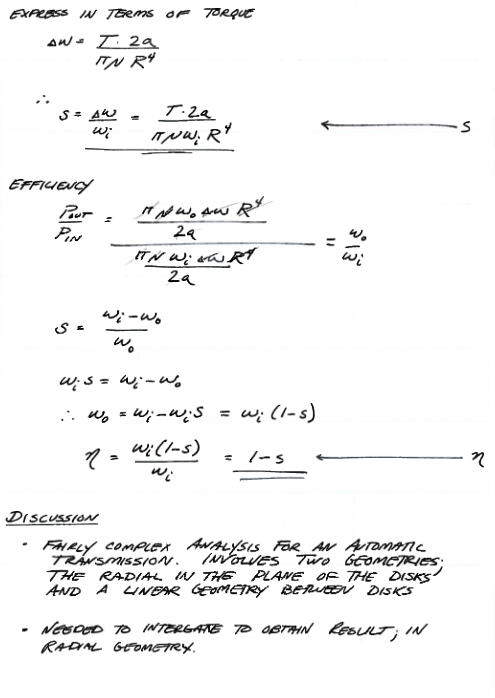 EXPRESS IN TERMS OF TORQUE
Δω = T · 2a / πN R⁴
∴
S = Δω / ωi = T · 2a / πNωi R⁴ ← S
EFFICIENCY
POUT / PIN = (πNωo Δω R⁴ / 2a) / (πNωi Δω R⁴ / 2a) = ωo / ωi
S = ωi − ωo / ωo
ωi S = ωi − ωo
∴ ωo = ωi − ωi S = ωi (1−S)
η = ωi (1−S) / ωi = 1−S ← η
DISCUSSION
- FAIRLY COMPLEX ANALYSIS FOR AN AUTOMATIC
TRANSMISSION. INVOLVES TWO GEOMETRIES;
THE RADIAL IN THE PLANE OF THE DISKS
AND A LINEAR GEOMETRY BETWEEN DISKS
- NEEDED TO INTERGATE TO OBTAIN RESULT; IN
RADIAL GEOMETRY.